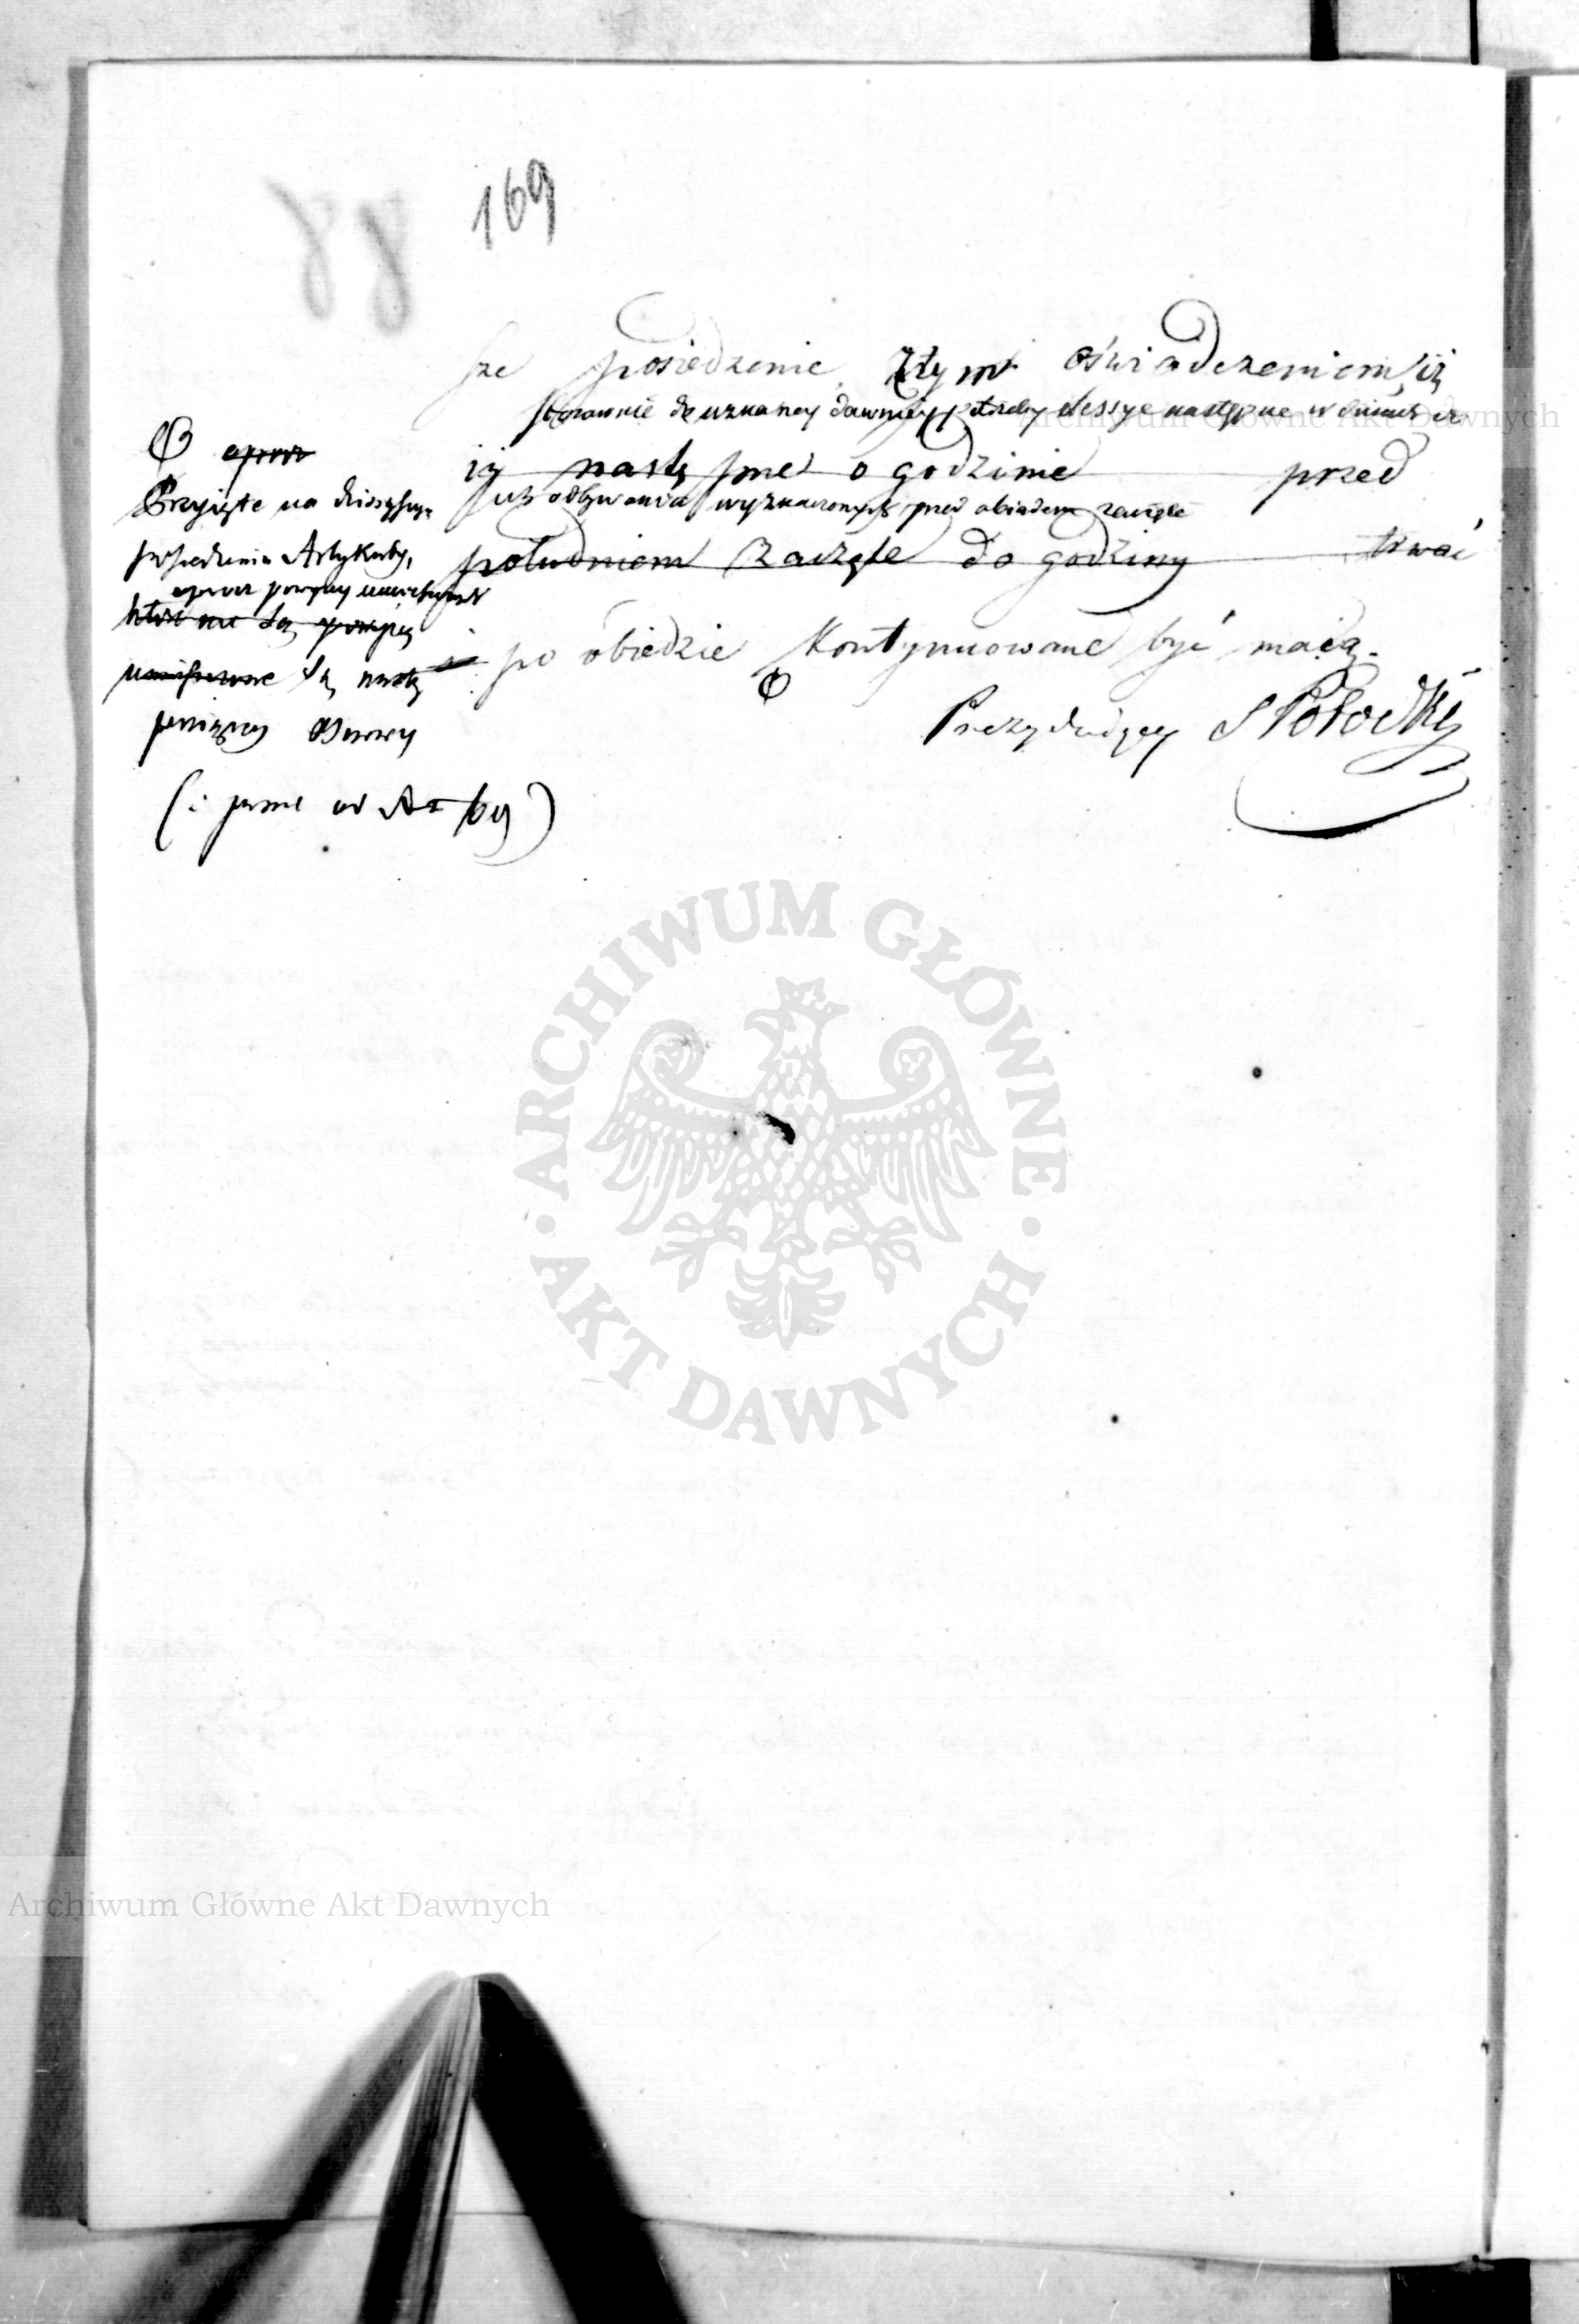 169
88
sze posiedzenie, z tym oświadczeniem, iż
stosownie do uznaney dawniey potrzeby Sessye następne w dniach
iż nastę pne o godzinie przed
odbywania wyznaczonych przed obiadem zaczęte
południem zaczęte do godziny trwać
po obiedzie kontynuowane być maią.
Prezyduiący S Potocki
oprócz
Przyięte na dzisieyszym
posiedzeniu Artykuły,
oprócz powyżey
które nie są powyżey
są nastę
puiącey Osnowy
(i pisać od Art 69)
ARCHIWUM GŁÓWNE
AKT DAWNYCH
Archiwum Główne Akt Dawnych
Archiwum Główne Akt Dawnych